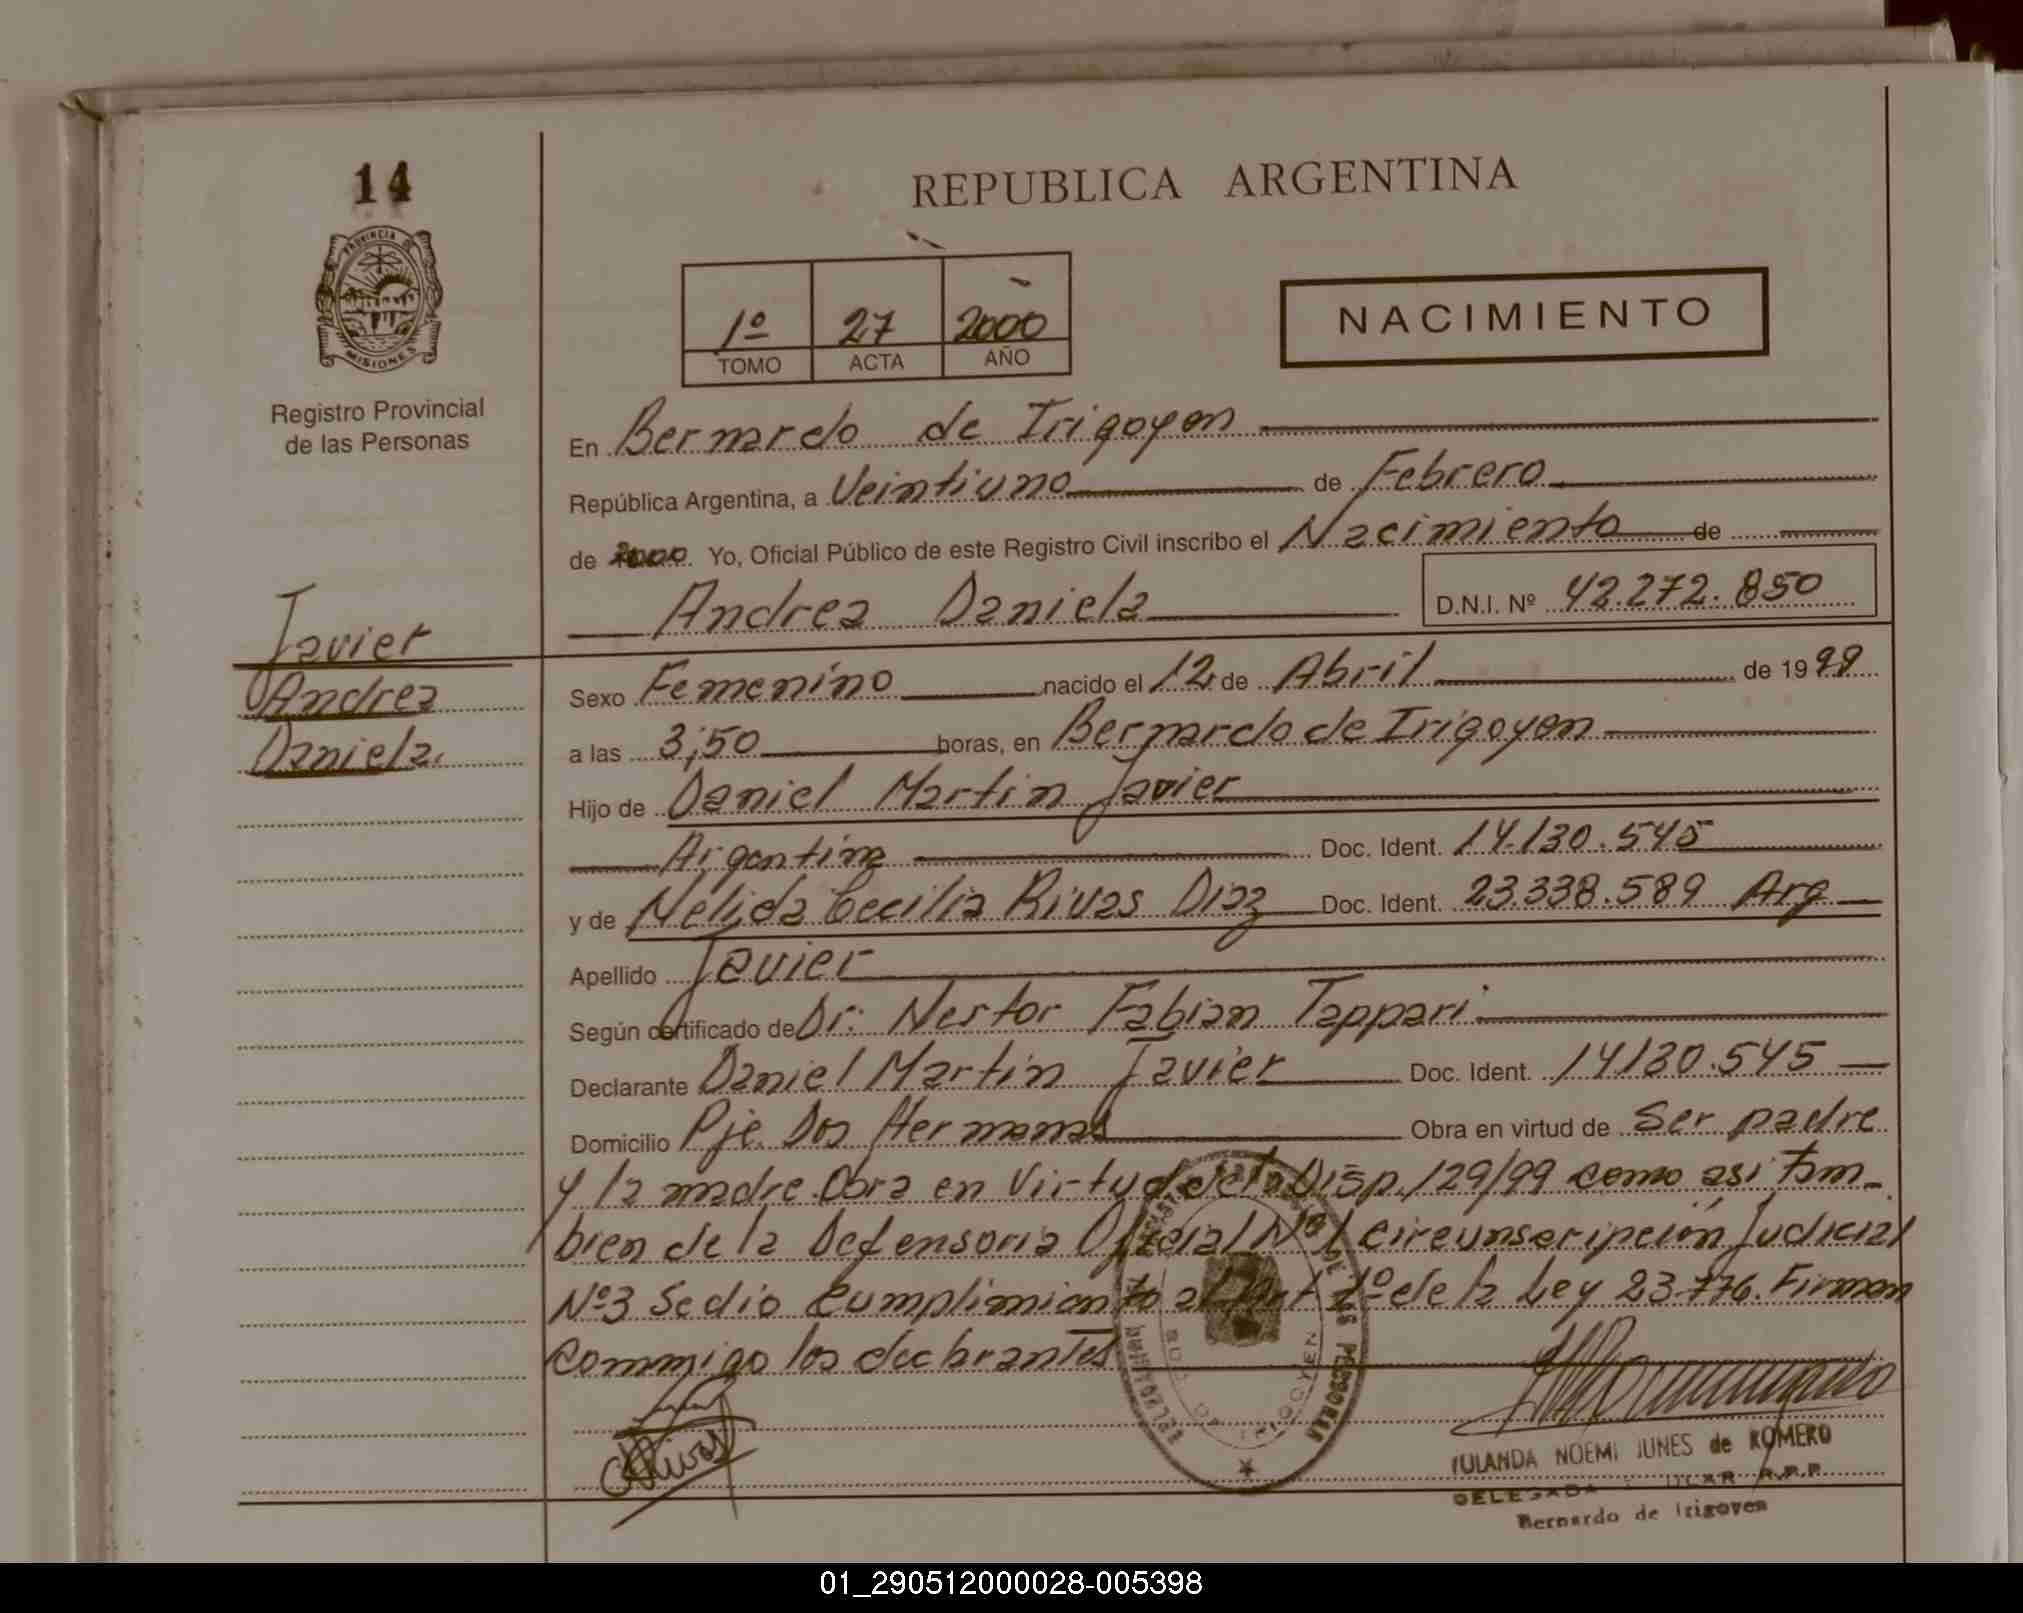 14
REPUBLICA ARGENTINA
PROVINCIA DE
MISIONES
Registro Provincial
de las Personas
1º 27 2000
TOMO ACTA AÑO
NACIMIENTO
En Bernardo de Irigoyen
República Argentina, a Veintiuno de Febrero
de 2000. Yo, Oficial Público de este Registro Civil inscribo el Nacimiento de
Andrea Daniela D.N.I. Nº 42.272.850
Javier
Andrea
Daniela.
Sexo Femenino nacido el 12 de Abril de 1999
a las 3;50 horas, en Bernardo de Irigoyen
Hijo de Daniel Martin Javier
Argentina Doc. Ident. 14.130.545
y de Nelida Cecilia Rivas Diaz Doc. Ident. 23.338.589 Arg
Apellido Javier
Según certificado de Dr: Nestor Fabian Tappari
Declarante Daniel Martin Javier Doc. Ident. 14130.545
Domicilio Pje. Dos Hermanas Obra en virtud de Ser padre
y la madre Obra en Virtud de la Disp. 129/99 como asi tam-
bien de la Defensoria Oficial Nº 1 circunscripción Judicial
Nº3 Se dio Cumplimiento al Art 1º de la Ley 23.776. Firman
commigo los declarantes
CRivas
YOLANDA NOEMI JUNES de ROMERO
DELEGADA TITULAR R.P.P.
Bernardo de Irigoyen
01_290512000028-005398